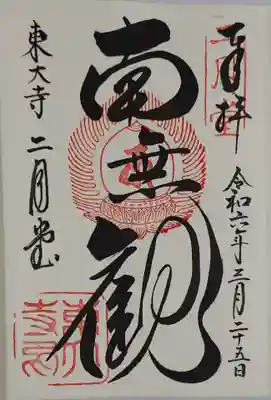 奉拝
令和六年三月二十五日
南無観
東大寺 二月堂